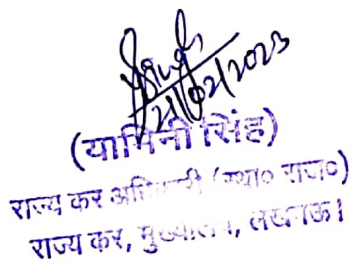 21/02/2023
(यामिनी सिंह)
राज्य कर अधिकारी (स्था० राज०)
राज्य कर, मुख्यालय, लखनऊ।